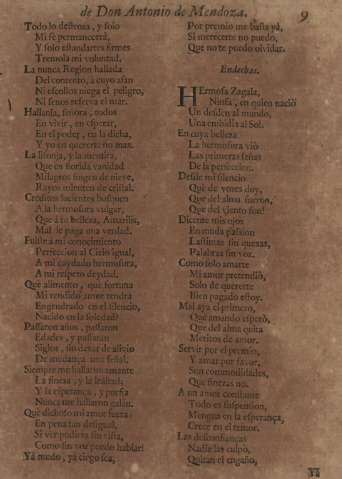 de Don Antonio de Mendoza. 9
Todo lo destroza, y solo
Mi fe permanecerá,
Y solo estandartes firmes
Tremola mi voluntad.
La nunca Region hallada
Del contento, a cuyo afan
Ni escollos niega el peligro,
Ni senos reserva el mar.
Hallanla, señora, todos
En vivir, en esperar,
En el poder, en la dicha,
Y yo en quererte no mas.
La lisonja, y la mentira,
Que es florida vanidad
Milagros fingen de nieve,
Rayos mienten de cristal.
Creditos lucientes busquen
A la hermosura vulgar,
Que á tu belleza, Amarilis,
Mal se paga una verdad.
Fulmina mi conocimiento
Perfeccion al Cielo igual,
A mi cuydado hermosura,
A mi respeto deydad.
Qué alimento, que fortuna
Mi vendido amor tendrá
Engendrado en el silencio,
Nacido en la soledad?
Passaron años, passaron
Edades, y passaron
Siglos, sin dexar de alivio
De mudança una señal.
Siempre me hallaron amante
La fineza, y la lealtad;
Y la esperança, y porfia
Nunca me hallaron galan.
Qué dichoso mi amor fuera
En pena tan desigual,
Si ver pudiera sin vista,
Como sin voz puedo hablar!
Yá mudo, yá ciego sea,
Por premio me basta yá,
Si merecerte no puedo,
Que no te puedo olvidar.
Endechas.
HErmosa Zagala,
Ninfa, en quien nació
Un desden al mundo,
Una embidia al Sol.
En cuya belleza
La hermosura vió
Las primeras señas
De la perfeccion.
Desde mi silencio
Qué de vozes doy,
Que del alma fueron,
Que del viento son!
Diceate mis ojos
En muda passion
Lastimas sin quexas,
Palabras sin voz.
Como solo amarte
Mi amor pretendió,
Solo de quererte
Bien pagado estoy.
Mal aya el primero,
Que amando esperó,
Que del alma quita
Meritos de amor.
Servir por el premio,
Y amar por favor,
Son commodidades,
Que finezas no.
A un amor constante
Todo es suspension,
Mengua en la esperança,
Crece en el temor.
Las desconfianças
Nadie las culpò,
Quitan el engaño,
Yá